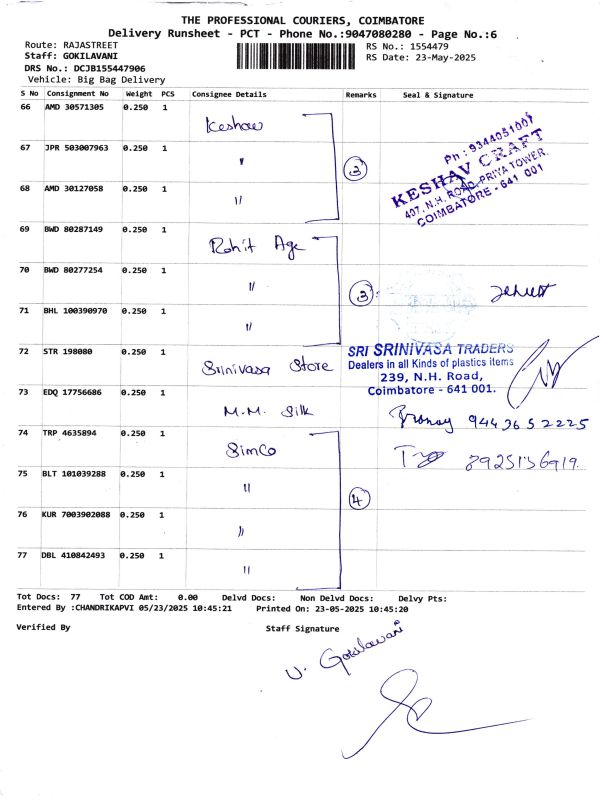 THE PROFESSIONAL COURIERS, COIMBATORE
Delivery Runsheet - PCT - Phone No.:9047080280 - Page No.:6
Route: RAJASTREET
RS No.: 1554479
Staff: GOKILAVANI
RS Date: 23-May-2025
DRS No.: DCJB155447906
Vehicle: Big Bag Delivery
S No Consignment No Weight PCS Consignee Details Remarks Seal & Signature
66 AMD 30571305 0.250 1 Keshav
67 JPR 503007963 0.250 1 "
68 AMD 30127058 0.250 1 "
3
Ph : 9344051007
KESHAV CRAFT
407, N.H. ROAD, PRIYA TOWER,
COIMBATORE - 641 001
69 BWD 80287149 0.250 1 Rohit Age
70 BWD 80277254 0.250 1 "
71 BHL 100390970 0.250 1 "
3
72 STR 198080 0.250 1 Srinivasa Store
SRI SRINIVASA TRADERS
Dealers in all Kinds of plastics items
239, N.H. Road,
Coimbatore - 641 001.
73 EDQ 17756686 0.250 1 M.M. Silk
9442652225
74 TRP 4635894 0.250 1 Simco
8925156919.
75 BLT 101039288 0.250 1 "
76 KUR 7003902088 0.250 1 "
77 DBL 410842493 0.250 1 "
4
Tot Docs: 77 Tot COD Amt: 0.00 Delvd Docs: Non Delvd Docs: Delvy Pts:
Entered By :CHANDRIKAPVI 05/23/2025 10:45:21 Printed On: 23-05-2025 10:45:20
Verified By Staff Signature
V. Gokilavani